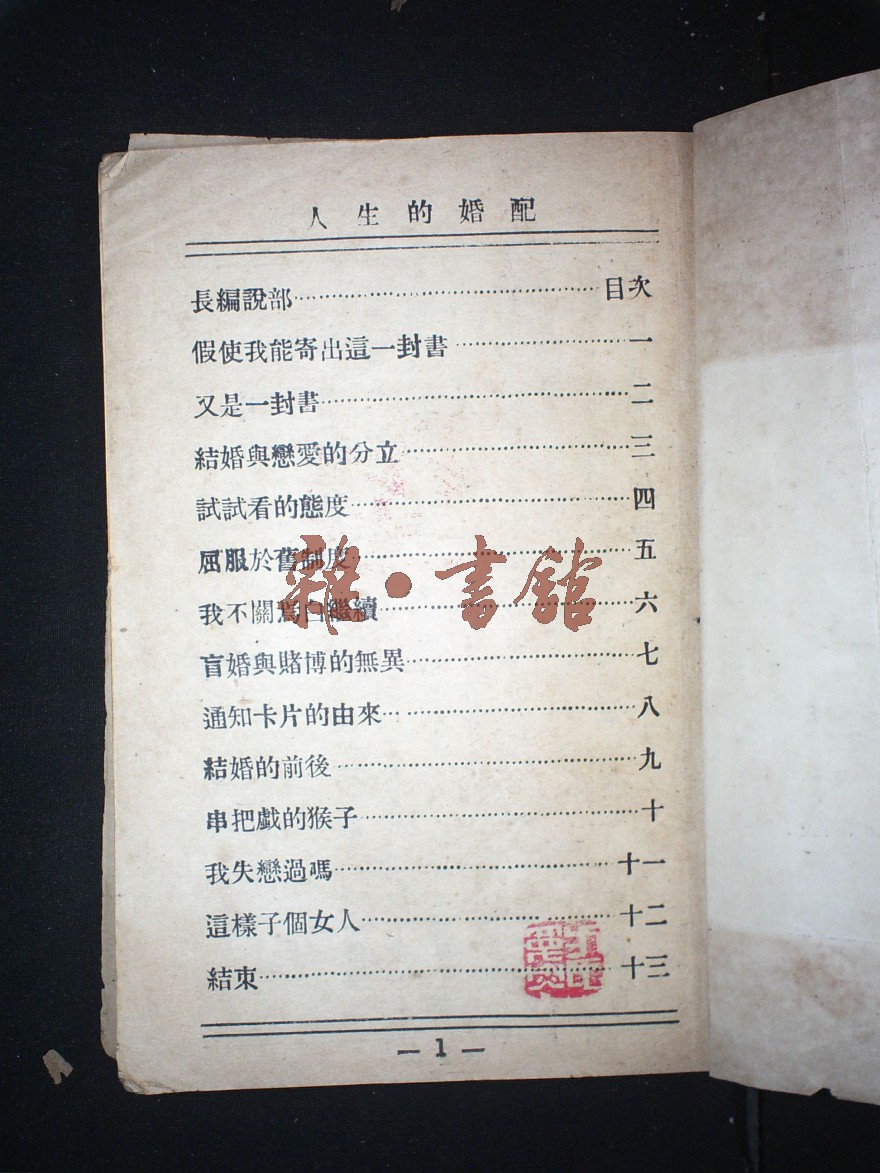 人生的婚配
長編說部……目次
假使我能寄出這一封書……一
又是一封書……二
結婚與戀愛的分立……三
試試看的態度……四
屈服於舊制度……五
我不關焉白繼續……六
盲婚與賭博的無異……七
通知卡片的由來……八
結婚的前後……九
串把戲的猴子……十
我失戀過嗎……十一
這樣子個女人……十二
結束……十三
— 1 —
雜·書館